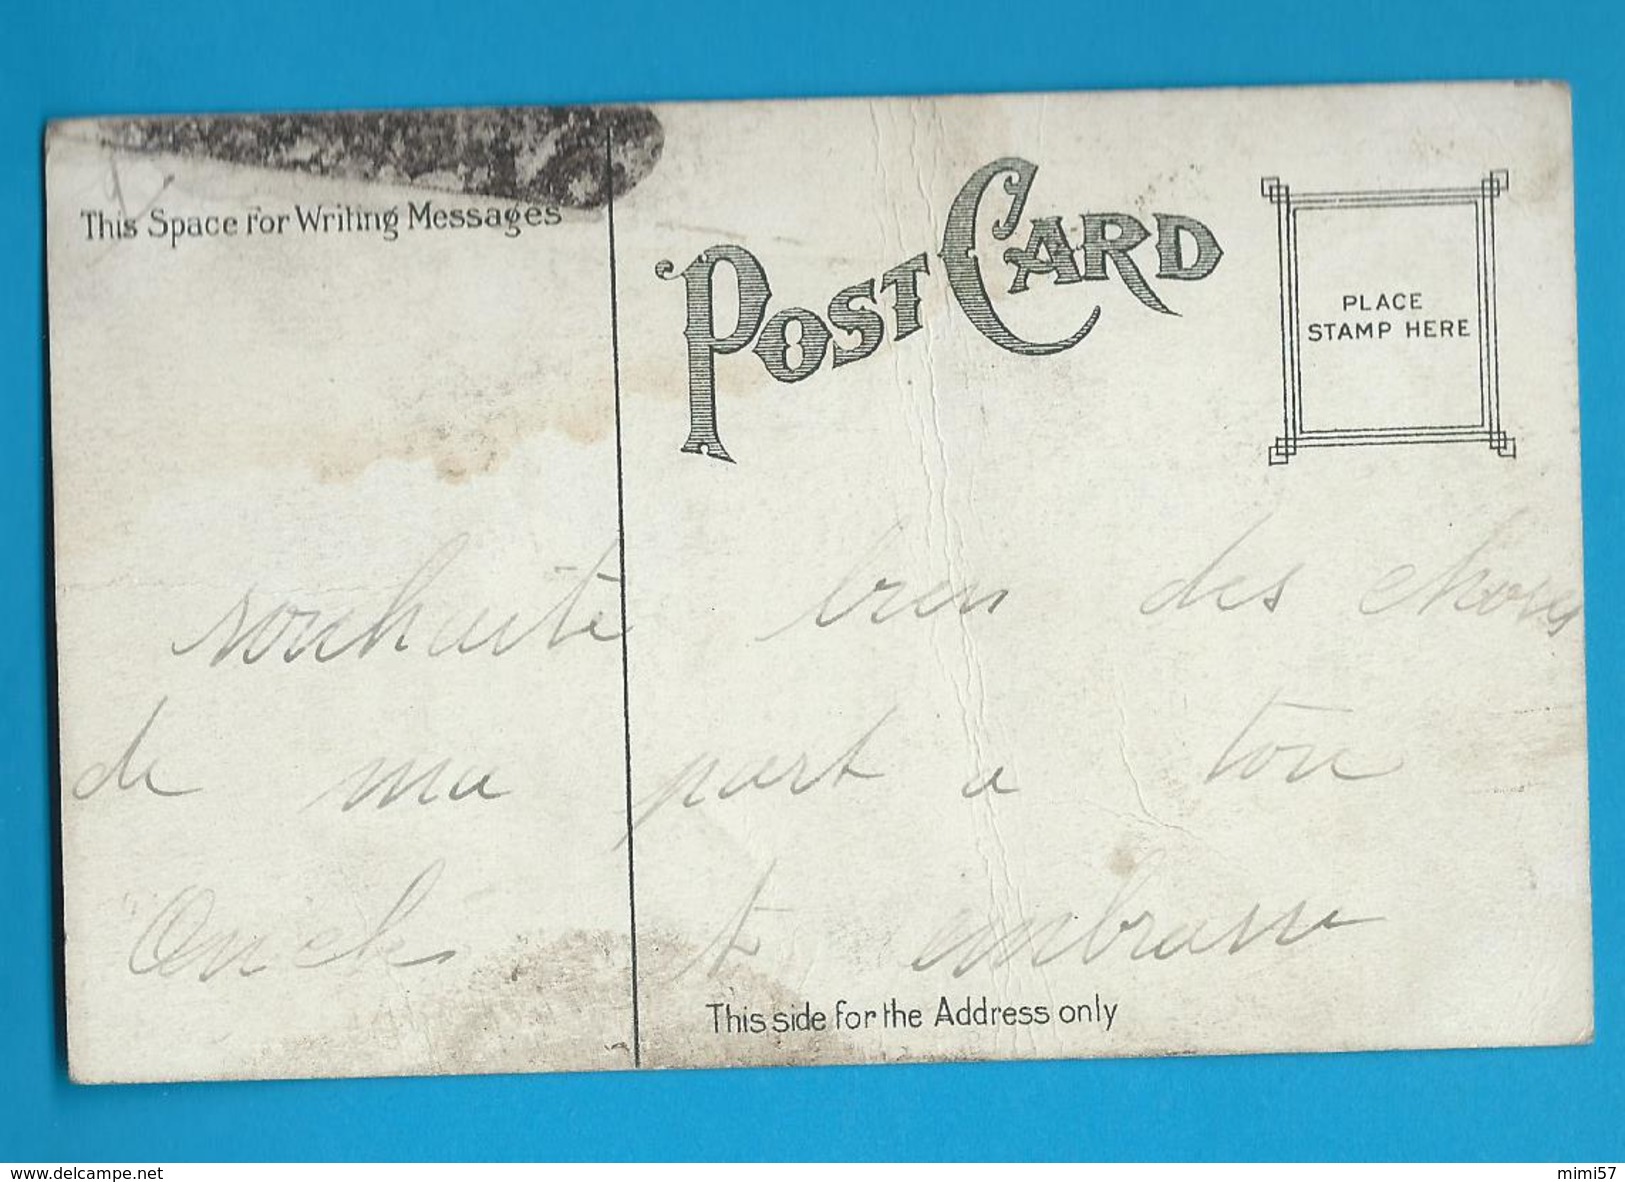 This Space for Writing Messages
POST CARD
PLACE
STAMP HERE
souhaite bien des choses
de ma part a ton
Oncle t embrasse
This side for the Address only
www.delcampe.net
mimi57